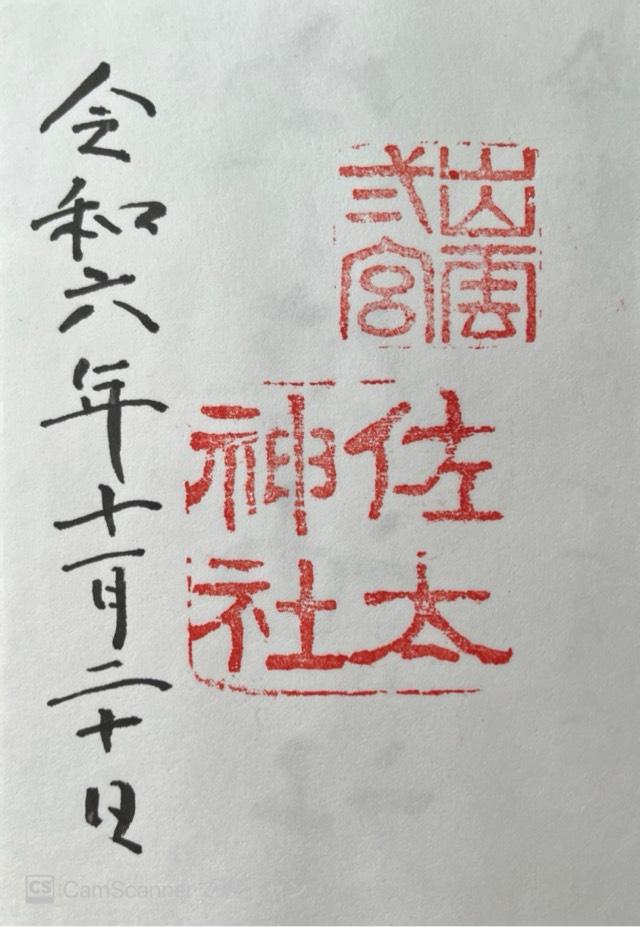 出雲
弐宮
佐太
神社
令和六年十一月二十日
CS CamScanner